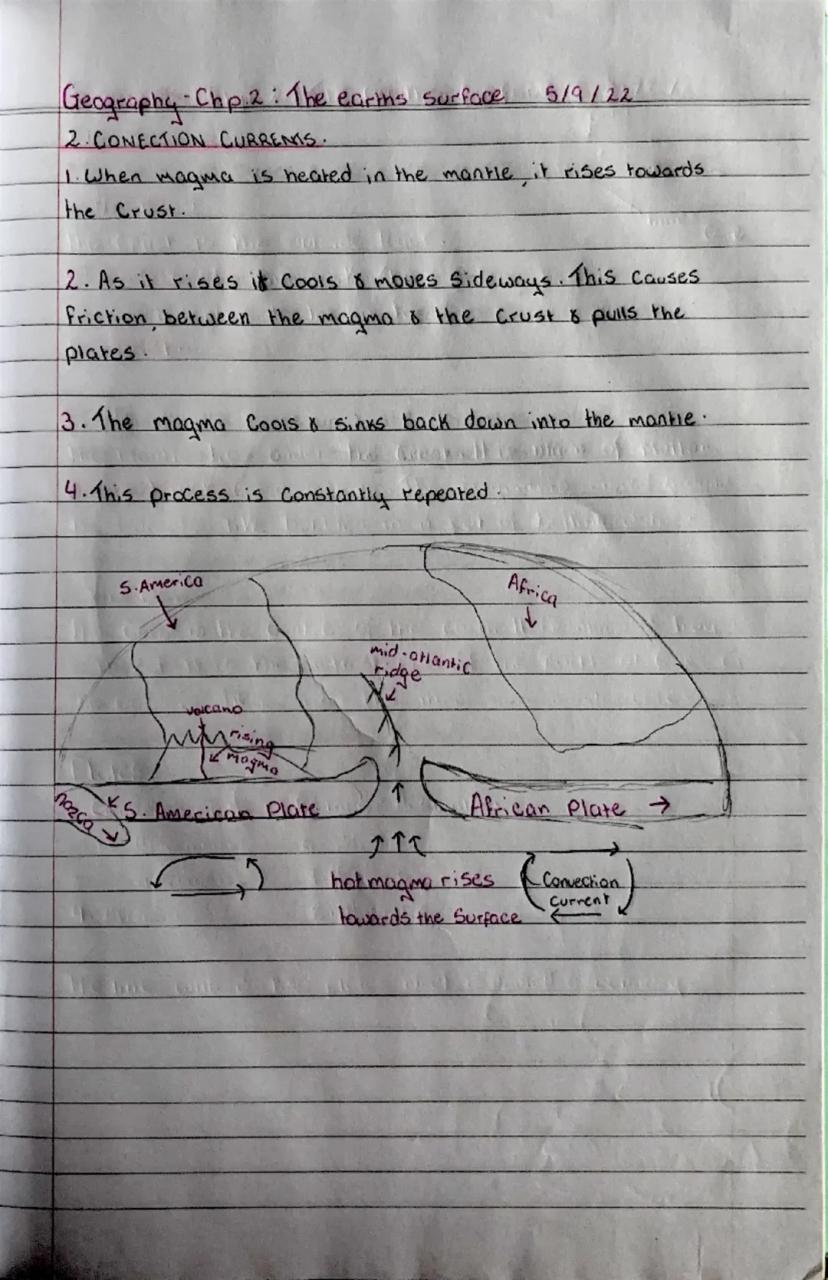 Geography - Chp.2 : The earths surface 5/9/22
2. CONECTION CURRENTS.
1. When magma is heated in the mantle, it rises towards
the Crust.
2. As it rises it cools & moves sideways. This causes
friction between the magma & the crust & pulls the
plates.
3. The magma cools & sinks back down into the mantle.
4. This process is constantly repeated.
S. America
Africa
mid-atlantic
ridge
volcano
rising
magma
nazca
S. American Plate
African Plate
hot magma rises
towards the surface
Convection
current